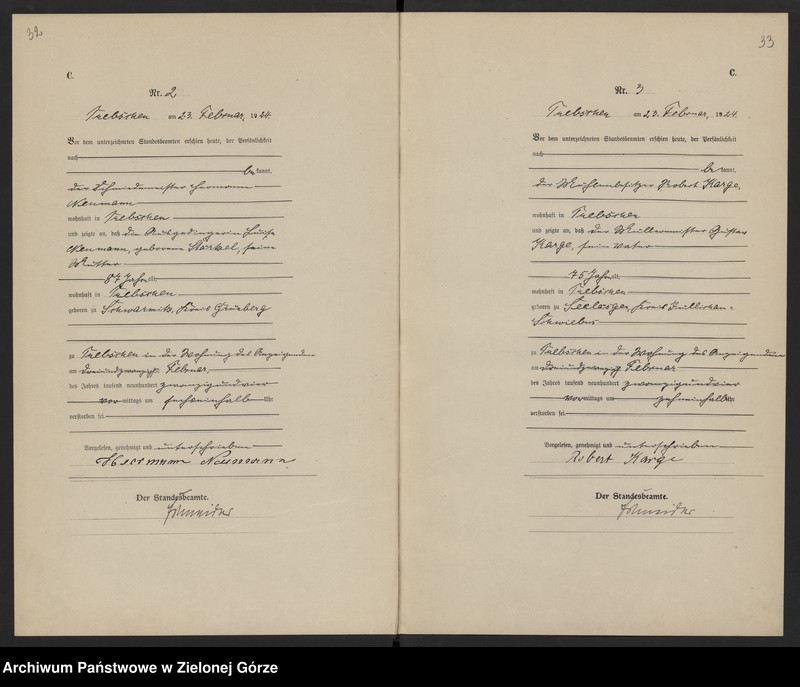 32
C.
Nr. 2
am 23. Februar 1924.
Vor dem unterzeichneten Standesbeamten erschien heute, der Persönlichkeit
nach
be kannt,
der Schmiedemeister Hermann
Neumann
wohnhaft in
und zeigte an, daß die Ausgedingerin Luise
Neumann, geborene seine
Mutter
87 Jahre alt,
wohnhaft in
geboren zu Schwarmitz, Kreis Grünberg
zu in der Wohnung des Anzeigenden
am dreiundzwanzigsten Februar,
des Jahres tausend neunhundert zwanzigundvier
vormittags um Uhr
verstorben sei.
Vorgelesen, genehmigt und unterschrieben
Herrmann Neumann
Der Standesbeamte.
Schneider
33
C.
Nr. 3
am 23. Februar 1924.
Vor dem unterzeichneten Standesbeamten erschien heute, der Persönlichkeit
nach
be kannt,
der Mühlenbesitzer Robert Karge,
wohnhaft in
und zeigte an, daß der Müllermeister Gustav
Karge, sein Vater
75 Jahre alt,
wohnhaft in
geboren zu Seelesgen, Kreis Züllichau-
Schwiebus
zu in der Wohnung des Anzeigenden
am dreiundzwanzigsten Februar
des Jahres tausend neunhundert zwanzigundvier
vormittags um zehneinhalb Uhr
verstorben sei.
Vorgelesen, genehmigt und unterschrieben
Robert Karge
Der Standesbeamte.
Schneider
Archiwum Państwowe w Zielonej Górze